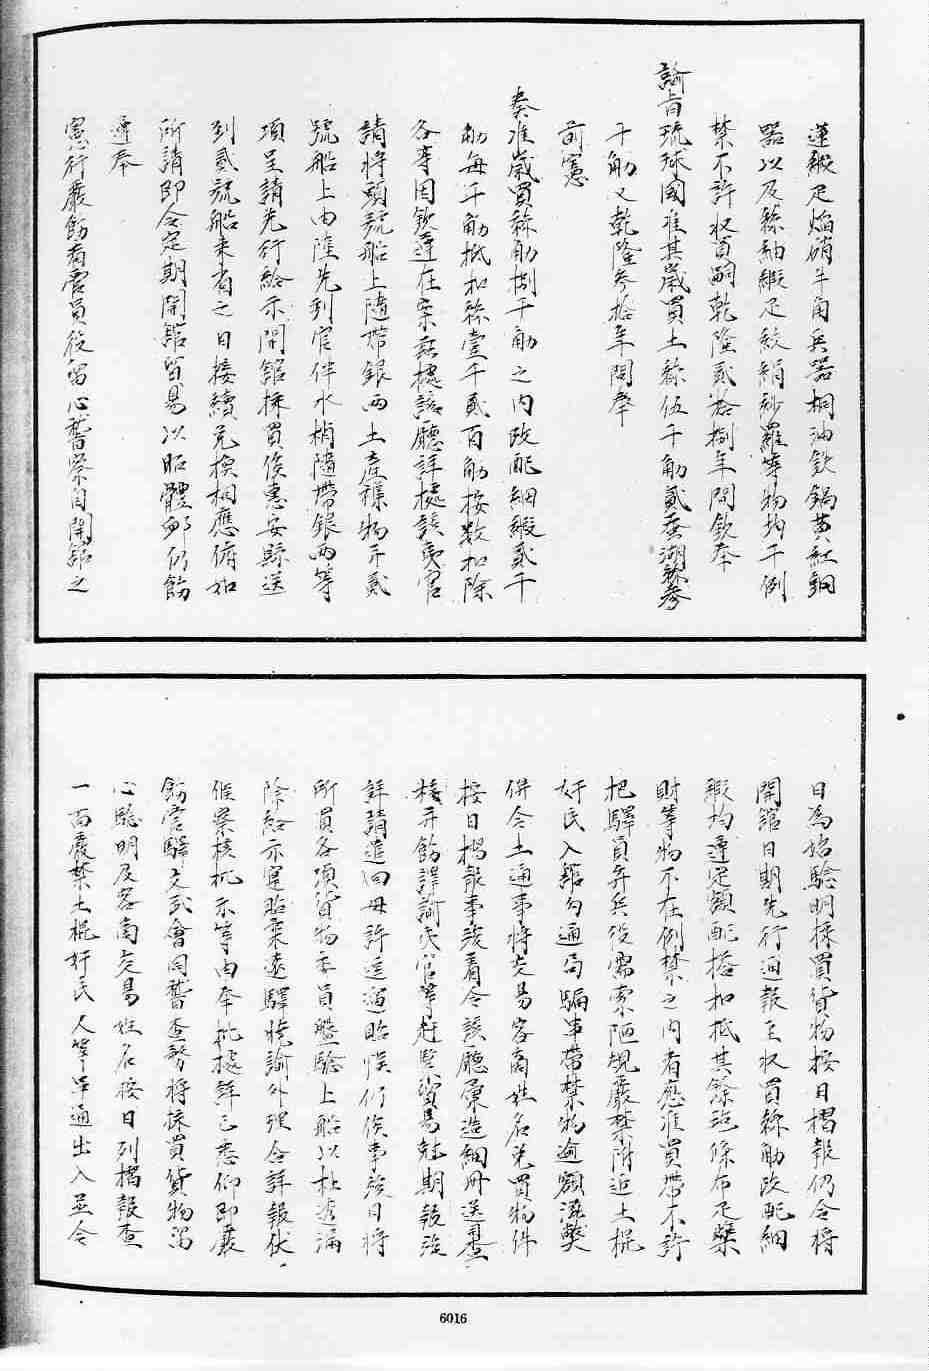 蓮緞疋焔硝牛角兵器桐油鉄鍋黄紅銅
器以及絲紬緞疋綾絹紗羅等物均干例
禁不許收買嗣乾隆貳拾捌年間欽奉
諭旨琉球國准其歳買土絲伍千觔貳蚕湖絲叁
千觔又乾隆叁拾年間奉
前憲
奏准歳買絲觔捌千觔之内改配紬緞貳千
觔每千觔抵扣絲壹千貳百觔按数扣除
各等因欽遵在案茲據該廳詳據該夷官
請將頭號船上隨帯銀両土産襍物并貳
號船上由陸先到官伴水梢隨帯銀両等
項呈請先行給示開舘採買俟惠安縣送
到貳號船來省之日接續兌換相應俯如
所請即令定期開舘貿易以昭體卹仍飭
遵奉
憲行嚴飭看雲員役留心稽察自開舘之
日為始驗明採買貨物按日摺報仍令將
開舘日期先行通報至收買絲觔改配紬
緞均遵定額配搭扣抵其餘 條布疋藥
財等物不在例禁之内者應准買帯不許
把驛員弁兵役需索陋規嚴禁附近土棍
奸民入舘勾通局騙串帯禁物逾額滋弊
併令土通事將交易客商姓名兌買物件
按日摺報事竣看令該廳彙造細冊送
核并飭譯諭夷官等赶緊貿易尅期報竣
詳請遣回毋許逗遛貽悞仍俟事竣日將
所買各項貨物委員盤驗上船以杜透漏
除給示寔貼柔遠驛曉諭外理合詳報伏
候察核批示等由奉批據詳已悉仰即嚴
飭 驛文武會同稽查勢將採買貨物 
心驗明及客商交易姓名按日列摺報查
一面嚴禁土棍奸民人等串通出入並令
6016